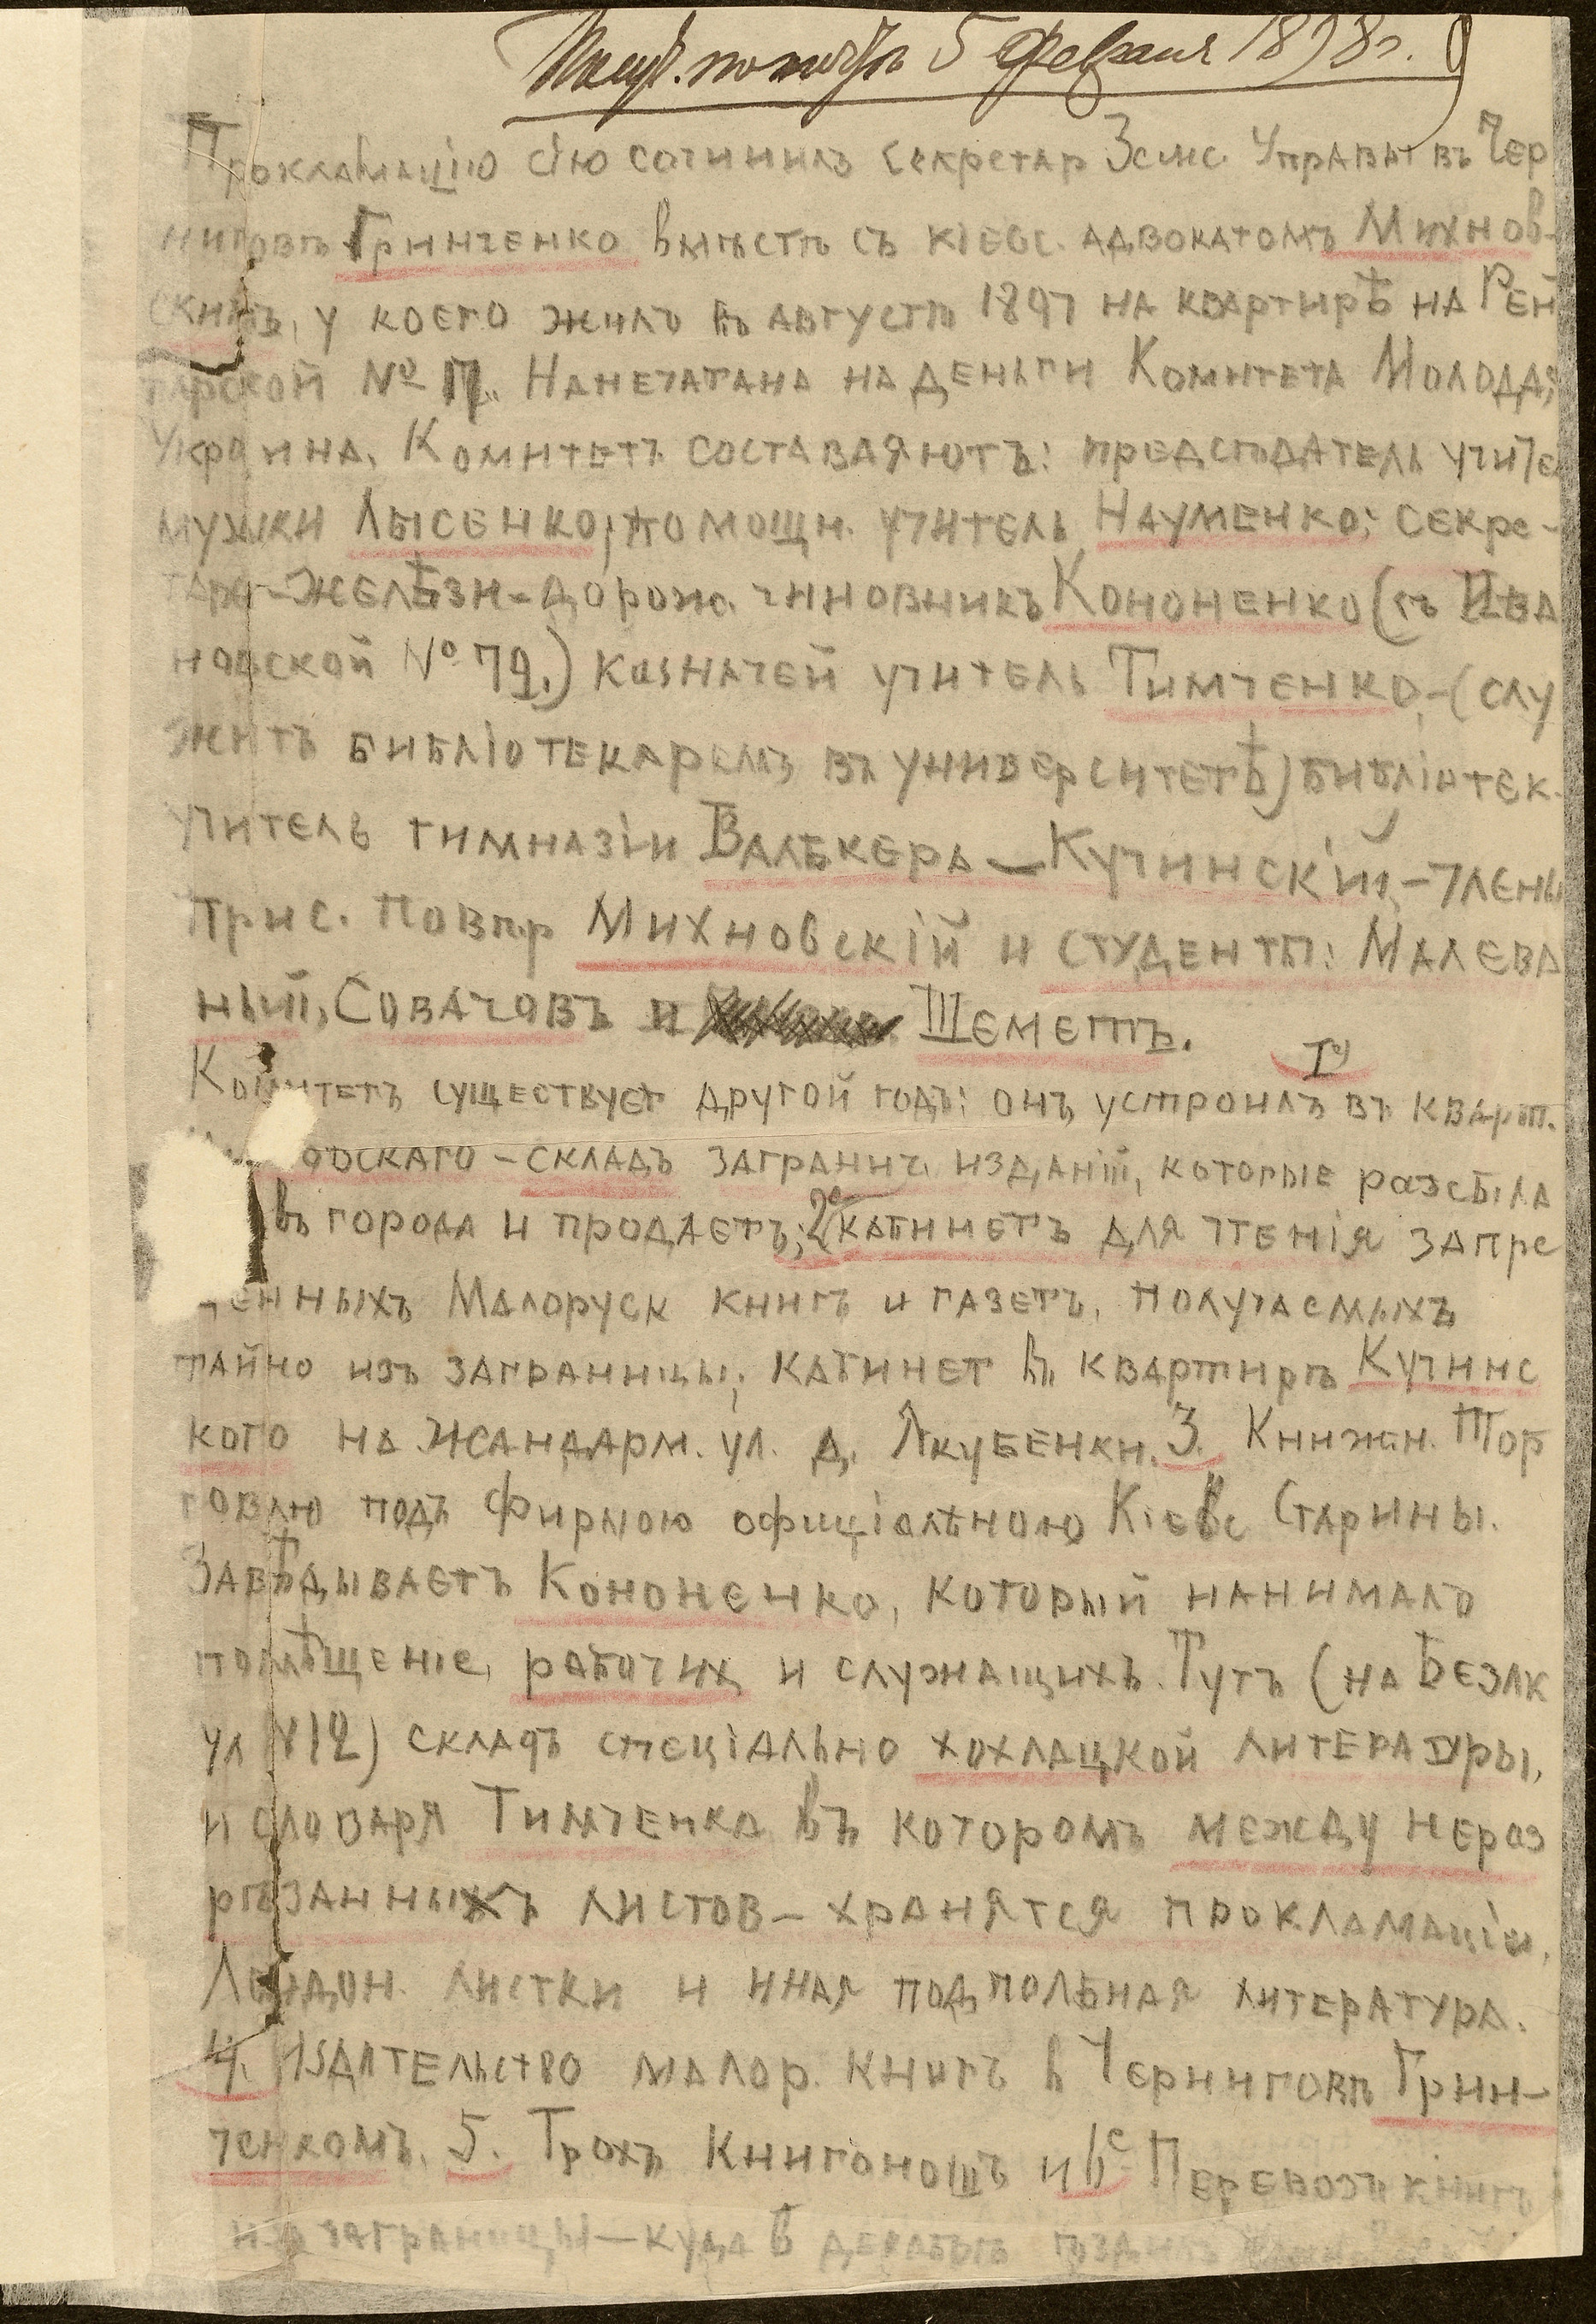 5 февраля 1898 г.
Прокламацію сію сочинилъ секретарЗемс. Управы въ Чер
ниговѣ Гринченко вмѣстѣ съ кіевс. адвокатомъ Михнов-
скимъ, у коего жилъ въ августѣ 1897 на квартирѣ на Рей
тарской №
Напечатана на деньги Комитета Молодая
Украина. Комитетъ составаяютъ: предсѣдатель учите
музыки Лысенко, помощн. учитель Науменко; секре-
тарь-желѣзн-дорож. чиновникъ Кононенко (съ Ива
новской № 79.) казначей учитель Тимченко,-(слу
житъ библіотекаремъ въ университетѣ) библіотек.
учитель гимназіи Валькера - Кучинскій, - члены
Прис. Повѣр Михновскій и студенты: Малева
ный, Совачовъ и Шеметъ.
Комитетъ существует другой годъ: онъ устроилъ 1е) въ кварт.
овскаго - складъ заграничн. изданій, которые разсыла
въ города и продаетъ; 2е кабинетъ для чтенія запре
щенныхъ Малоруск книгъ и газетъ, получаемыхъ
тайно изъ заграницы; кабинет въ квартирѣ Кучинс
кого на Жандарм. ул. д. Якубенки. 3. Книжн. Тор
говлю подъ фирмою офиціальною Кіевс Старины.
Завѣдываетъ Кононенко, который нанималъ
помѣщеніе, рабочих и служащихъ. Тутъ (на Безак
ул №12) складъ спеціально хохлацкой литературы,
и словаря Тимченка въ которомъ между нераз
рѣзанныхъ листов - хранятся прокламаціи,
Лондон. листки и иная подпольная литература.
4. Издательство малор. книгъ в Черниговѣ Грин-
ченкомъ. 5. Трохъ Книгоношъ и 6е Перевозъ книгъ
изъ заграницы - куда в декабрѣ ѣздилъ